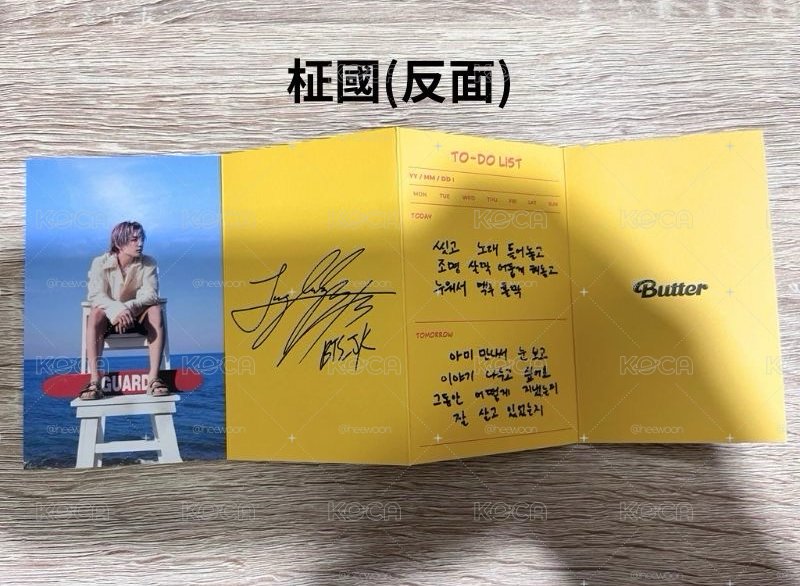 柾國(反面)
GUARD
BTS JK
TO-DO LIST
YY / MM / DD :
MON TUE WED THU FRI SAT SUN
TODAY
씻고 노래 틀어놓고
조명 살짝 어둡게 켜놓고
누워서 맥주 홀짝
TOMORROW
아미 만나서 눈 보고
이야기 나누고 싶어요
그동안 어떻게 지냈는지
잘 살고 있었는지
Butter
KOCA
@heewoon